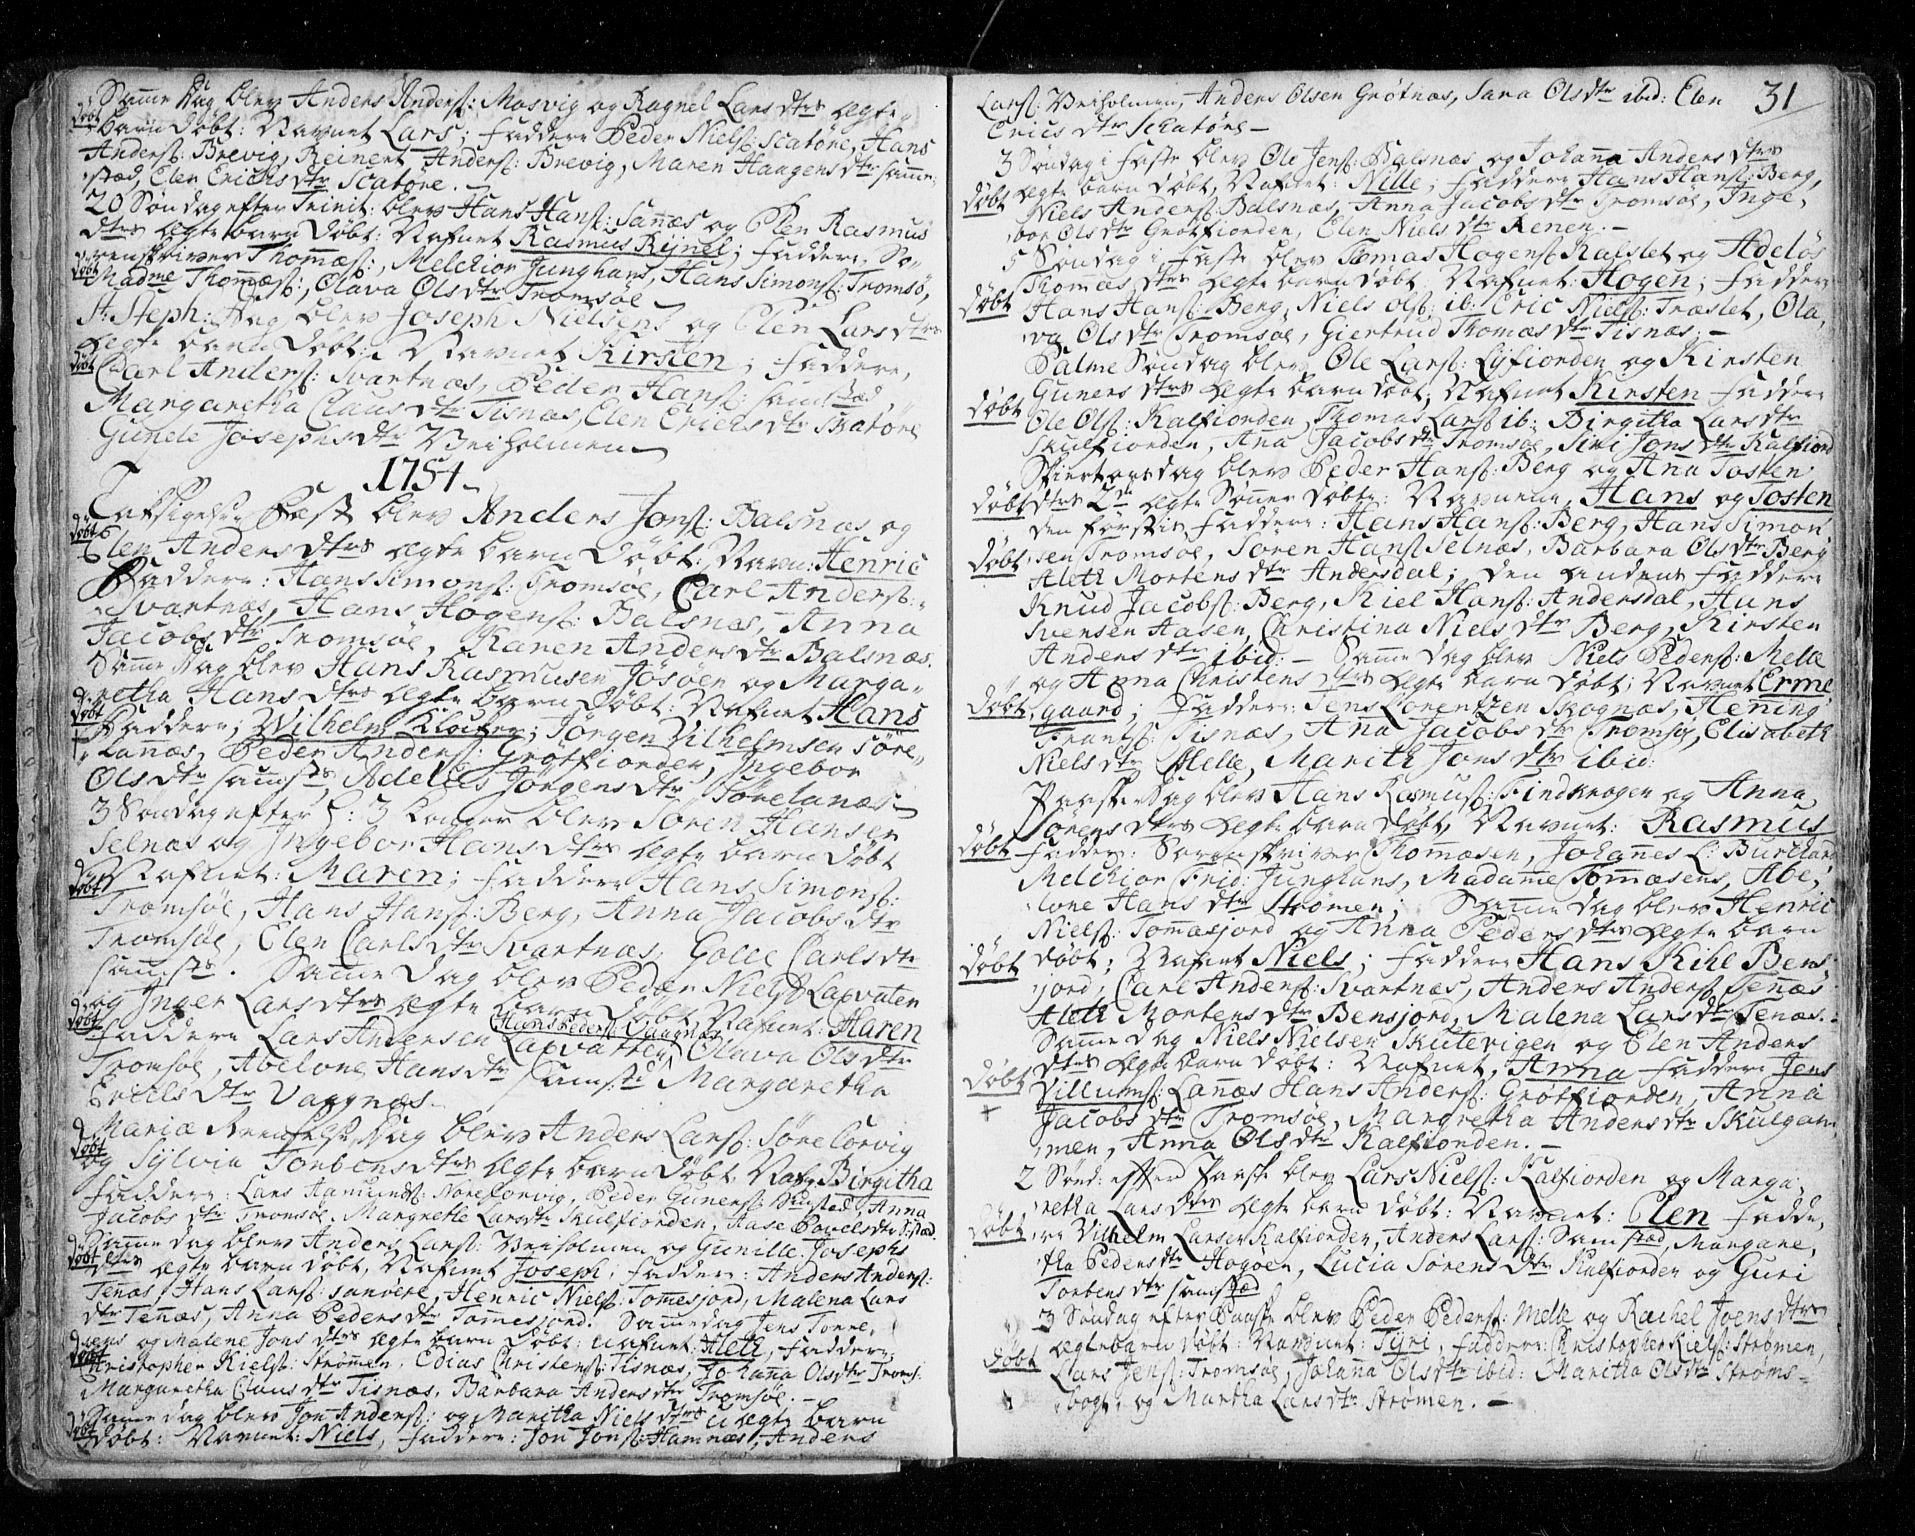 Samme Dag blev Anders Anders: Mosvig og Ragnel Lars dtrs ægte
døbt
barn døbt: Navnet Lars; Faddere Peder Niels: Scatøre, Hans
Anders: Brevig, Reinert Anders: Brevig, Maren Haagens dtr samme-
stæd, Elen Erichs dtr Scatøre.
20 Søndag efter Trinit: blev Hans Hans: Sanæs og Elen Rasmus
dtrs ægte barn døbt: Nafnet Rasmus Rynel; Faddere, So-
renskriver Thomæs:, Melchior Junghans, Hans Simons: Tromsö,
døbt
Madme Thomæs:, Olava Ols dtr Tromsöe
St: Steph: Dag blev Joseph Nielsens og Elen Lars dtrs
ægte barn döbt: Navnet Kirsten; Faddere,
døbt
Carl Anders: Svartnæs, Peder Hans: samstæd,
Margaretha Claus dtr Tisnæs, Elen Erichs dtr Skatøre
Gunele Josephs dtr Veiholmen
1754
Taksigelse Fest blev Anders Jons: Balsnæs og
døbt
Elen Anders dtrs ægte barn Döbt: Navn: Henric
Faddere: Hans Simons: Tromsöe, Carl Anders:
Svartnæs, Hans Hogens: Balsnæs, Anna
Jacobs dtr Tromsöe, Karen Anders dtr Balsnæs.
Samme Dag blev Hans Rasmusen Jösöen og Marga-
retha Hans dtrs ægte barn Döbt: Nafnet Hans
døbt
Faddere; Wilhelm Klocker; Jörgen Vilhelmsen Söre-
Lanæs, Peder Anders: Grötfiorden, Ingebor
Ols dtr samsts, Adelus Jörgens dtr Sörelanæs
3 Søndag efter H: 3 Konger blev Sören Hansen
Selnæs og Ingebor Hans dtrs ægte barn Döbt
døbt
Nafnet: Maren; Faddere Hans Simons:
Tromsöe, Hans Hans: Berg, Anna Jacobs dtr
Tromsöe, Elen Carls dtr Svartnæs, Golle Carls dtr
samsts. Samme Dag blev Peder Niels Laxvaten
og Inger Lars dtrs ægte barn Döbt Nafnet: Haren
døbt
Hans Peders: Vaagnæs
Faddere Lars Andersen Laxvatten, Olava Ols dtr
Tromsöe, Abelone Hans dtr samsts Margaretha
Erichs dtr Vaggnæs.
Mariæ Renselse Dag blev Anders Lars: Sörelorvig
døbt
og Sylvia Torbens dtrs ægte barn Döbt Nafn Birgitha
Faddere: Lars Hamunds: Noreforvig, Peder Guners: samstæd, Anna
Jacobs dtr Tromsöe, Margrethe Lars dtr Skulfiorden, Aase Povels dtr sstæd.
Samme dag blev Anders Lars: Veiholmen og Gunille Josephs
døbt
dtrs ægte barn döbt, Nafnet Joseph; Faddere: Anders Anders:
Tenæs, Hans Lars: Sanöere, Henric Niels: Tomesjord, Malena Lars
dtr Tenæs, Anna Peders dtr Tomesjord. Samme dag Jens Torre,
sens og Malene Jons dtrs ægte barn Döbt: nafnet Aleth, Faddere;
døbt
Christopher Kiels: Strömmen, Edias Christens: Tisnæs, Johana Ols dtr Troms:
Margaretha Claus dtr Tisnæs, Barbara Anders dtr Tromsöe.
Samme dag blev Jon Anders: og Maritha Niels dtrs uægte barn
døbt
Döbt: Navnet: Niels, Faddere: Jon Jons: Hamnæs, Anders
31
Lars: Veiholmen, Anders Olsen Grötnæs, Sara Ols dtr ibid: Elen
Erics dtr Schatöre
3 Søndag i Faste blev Ole Jens: Balsnæs og Johana Anders dtrs
døbt
ægte barn döbt, Nafnet: Nille, Faddere Hans Hans: Berg,
Niels Anders: Balsnæs, Anna Jacobs dtr Tromsöe, Inge,
bor Ols dtr Grötfiorden, Elen Niels dtr Renen.
5 Søndag i Faste blev Tomas Hogens: Rafslet og Adelös
Thomæs dtrs ægte barn döbt, Nafnet: Hogen; Faddere
døbt
Hans Hans: Berg, Niels Ols: ib: Eric Niels: Træslet, Ola,
va Ols dtr Tromsöe, Giertrud Thomæs dtr Tisnæs.
Palme Søndag blev Ole Lars: Lyfiorden og Kirsten
Guners dtrs ægte barn döbt, Nafnet Kirsten Faddere
døbt
Ole Ols: Kalfiorden, Thomas Lars: ib: Birgitha Lars dtr
Skulfiorden, Ana Jacobs dtr Tromsöe, Siri Jons dtr Kalfiord
Skiertorsdag blev Peder Hans: Berg og Ana Tosten
døbt
dtrs 2de ægte Sønner döbte: Navnene, Hans og Tosten
den første Faddere: Hans Hans: Berg, Hans Simon
døbt
sen Tromsöe, Sören Hans: Selnæs, Barbara Ols dtr Berg
Aleth Mortens dtr Andersdal; den andens Faddere
Knud Jacobs: Berg, Kiel Hans: Andersdal, Hans
Svensen Aasen, Christina Niels dtr Berg, Kirsten
Anders dtr ibid: Samme dag blev Niels Peders: Melle
og Anna Christens dtrs ægte barn döbt; Navnet Erme
døbt
gaard; Faddere: Jens Lorentzen Skognæs, Hening
Frans: Tisnæs, Ana Jacobs dtr Tromsö, Elisabeth
Niels dtr Melle, Marith Jons dtr ibid:
Paaske Dag blev Hans Rasmus: Findkrogen og Anna
Sörens dtrs ægte barn döbt, Navnet: Rasmus
døbt
Fadder: Sorenskriver Thomæsen, Johannes L: Burchard
Melchior Frid: Junghans, Madame Tomæsens, Abe,
lone Hans dtr Stromen; Samme dag blev Henric
Niels: Tomasjord og Anna Peders dtrs ægte barn
døbt
döbt; Nafnet Niels; Faddere Hans Kihl Bens,
jord, Carl Anders: Svartnæs, Anders Anders: Tenæs
Aleth Mortens dtr Bensjord, Malena Lars dtr Tenæs.
Samme dag Niels Nielsen Skutevigen og Elen Anders
døbt
dtrs ægte barn döbt: Nafnet, Anna Faddere Jens
Villums: Lanæs Hans Anders: Grötfiorden, Anna
Jacobs dtr Tromsöe, Margretha Anders dtr Skulgam
men, Anna Ols dtr Kalfiorden.
2 Sønd: efter Paaske blev Lars Niels: Kalfiorden og Marga,
retha Lars dtrs ægte barn döbt: Navnet: Elen Fadde,
døbt
re Vilhelm Larsen Kalfiorden, Anders Lars: Samstæd, Margare,
tha Peders dtr Hogöen, Lucia Sörens dtr Kalfiorden og Guri
Torbens dtr samstæd
3 Søndag efter Paaske blev Peder Peders: Melle og Rachel Joens dtrs
ægte barn döbt: Navnet: Syri, Faddere: Christopher Kiels: Strømen,
døbt
Lars Jens: Tromsöe, Johana Ols dtr ibid: Maritha Ols dtr Stroms-
bogt, og Martha Lars dtr Strømen.